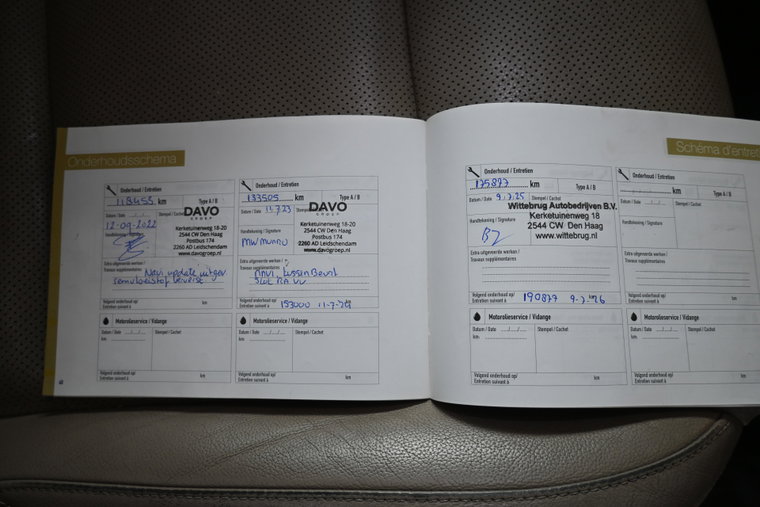 Onderhoudsschema
Onderhoud / Entretien
118455 km Type A / B
Datum / Date Stempel / Cachet
12-09-2022
DAVO
GROUP
Kerketuinenweg 18-20
2544 CW Den Haag
Postbus 174
2260 AD Leidschendam
www.davogroep.nl
Handtekening / Signature
Extra uitgevoerde werken /
Travaux supplémentaires
Navi update uitgev
remvloeistof ververst
Volgend onderhoud op/
Entretien suivant à km
Motorolieservice / Vidange
Datum / Date Stempel / Cachet
km
Volgend onderhoud op/
Entretien suivant à km
Onderhoud / Entretien
133505 km Type A / B
Datum / Date 11.7.23 Stempel
DAVO
GROUP
Kerketuinenweg 18-20
2544 CW Den Haag
Postbus 174
2260 AD Leidschendam
www.davogroep.nl
Handtekening / Signature
Extra uitgevoerde werken /
Travaux supplémentaires
NAVI
Volgend onderhoud op/
Entretien suivant à 153000 km
Motorolieservice / Vidange
Datum / Date Stempel / Cachet
km
Volgend onderhoud op/
Entretien suivant à km
60
Schéma d'entreti
Onderhoud / Entretien
175877 km Type A / B
Datum / Date 9.7.25
Wittebrug Autobedrijven B.V.
Kerketuinenweg 18
2544 CW Den Haag
www.wittebrug.nl
Handtekening / Signature
Extra uitgevoerde werken /
Travaux supplémentaires
Volgend onderhoud op/
Entretien suivant à 190877 km 9.7.26
Motorolieservice / Vidange
Datum / Date Stempel / Cachet
km
Volgend onderhoud op/
Entretien suivant à km
Onderhoud / Entretien
km Type A / B
Datum / Date Stempel / Cachet
Handtekening / Signature
Extra uitgevoerde werken /
Travaux supplémentaires
Volgend onderhoud op/
Entretien suivant à km
Motorolieservice / Vidange
Datum / Date Stempel / Cachet
km
Volgend onderhoud op/
Entretien suivant à km